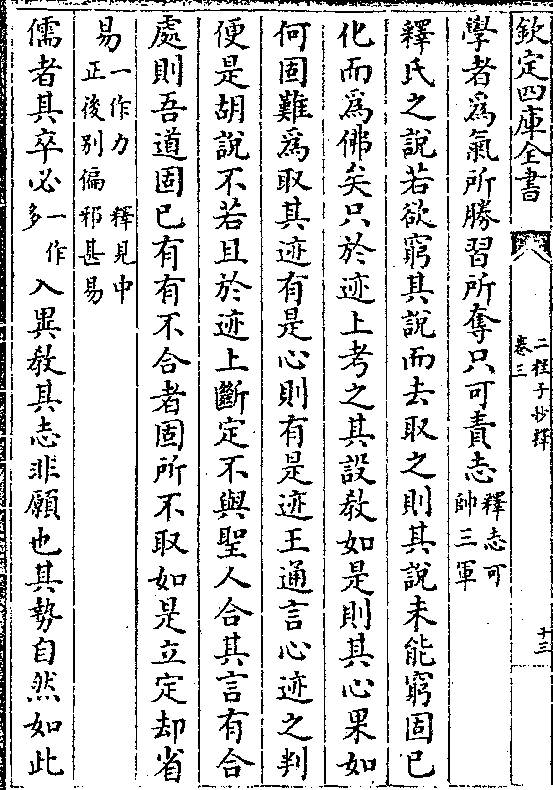 欽定四庫全書
二程子抄釋
卷三
十三
學者為氣所勝習所奪只可責志釋志可帥三軍
釋氏之說若欲窮其說而去取之則其說未能窮固已
化而為佛矣只於迹上考之其設教如是則其心果如
何固難為取其迹有是心則有是迹王通言心迹之判
便是胡說不若且於迹上斷定不與聖人合其言有合
處則吾道固已有有不合者固所不取如是立定却省
易一作力 釋見中正後別偏邪甚易
儒者其卒必一作多入異教其志非願也其勢自然如此